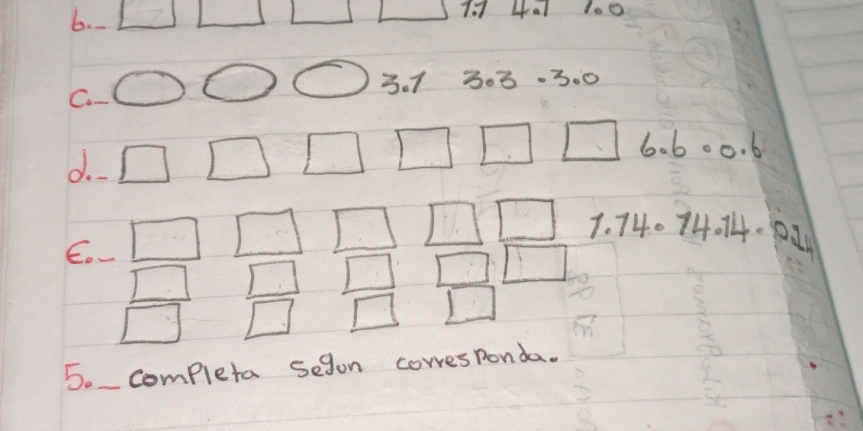 b.-  1.1  4.1  1.0
c.-  3.1  3.3 .3.0
d.-  6.6 . 0.6
E.-  1.14. 14.14.
5.- completa segun corresponda.